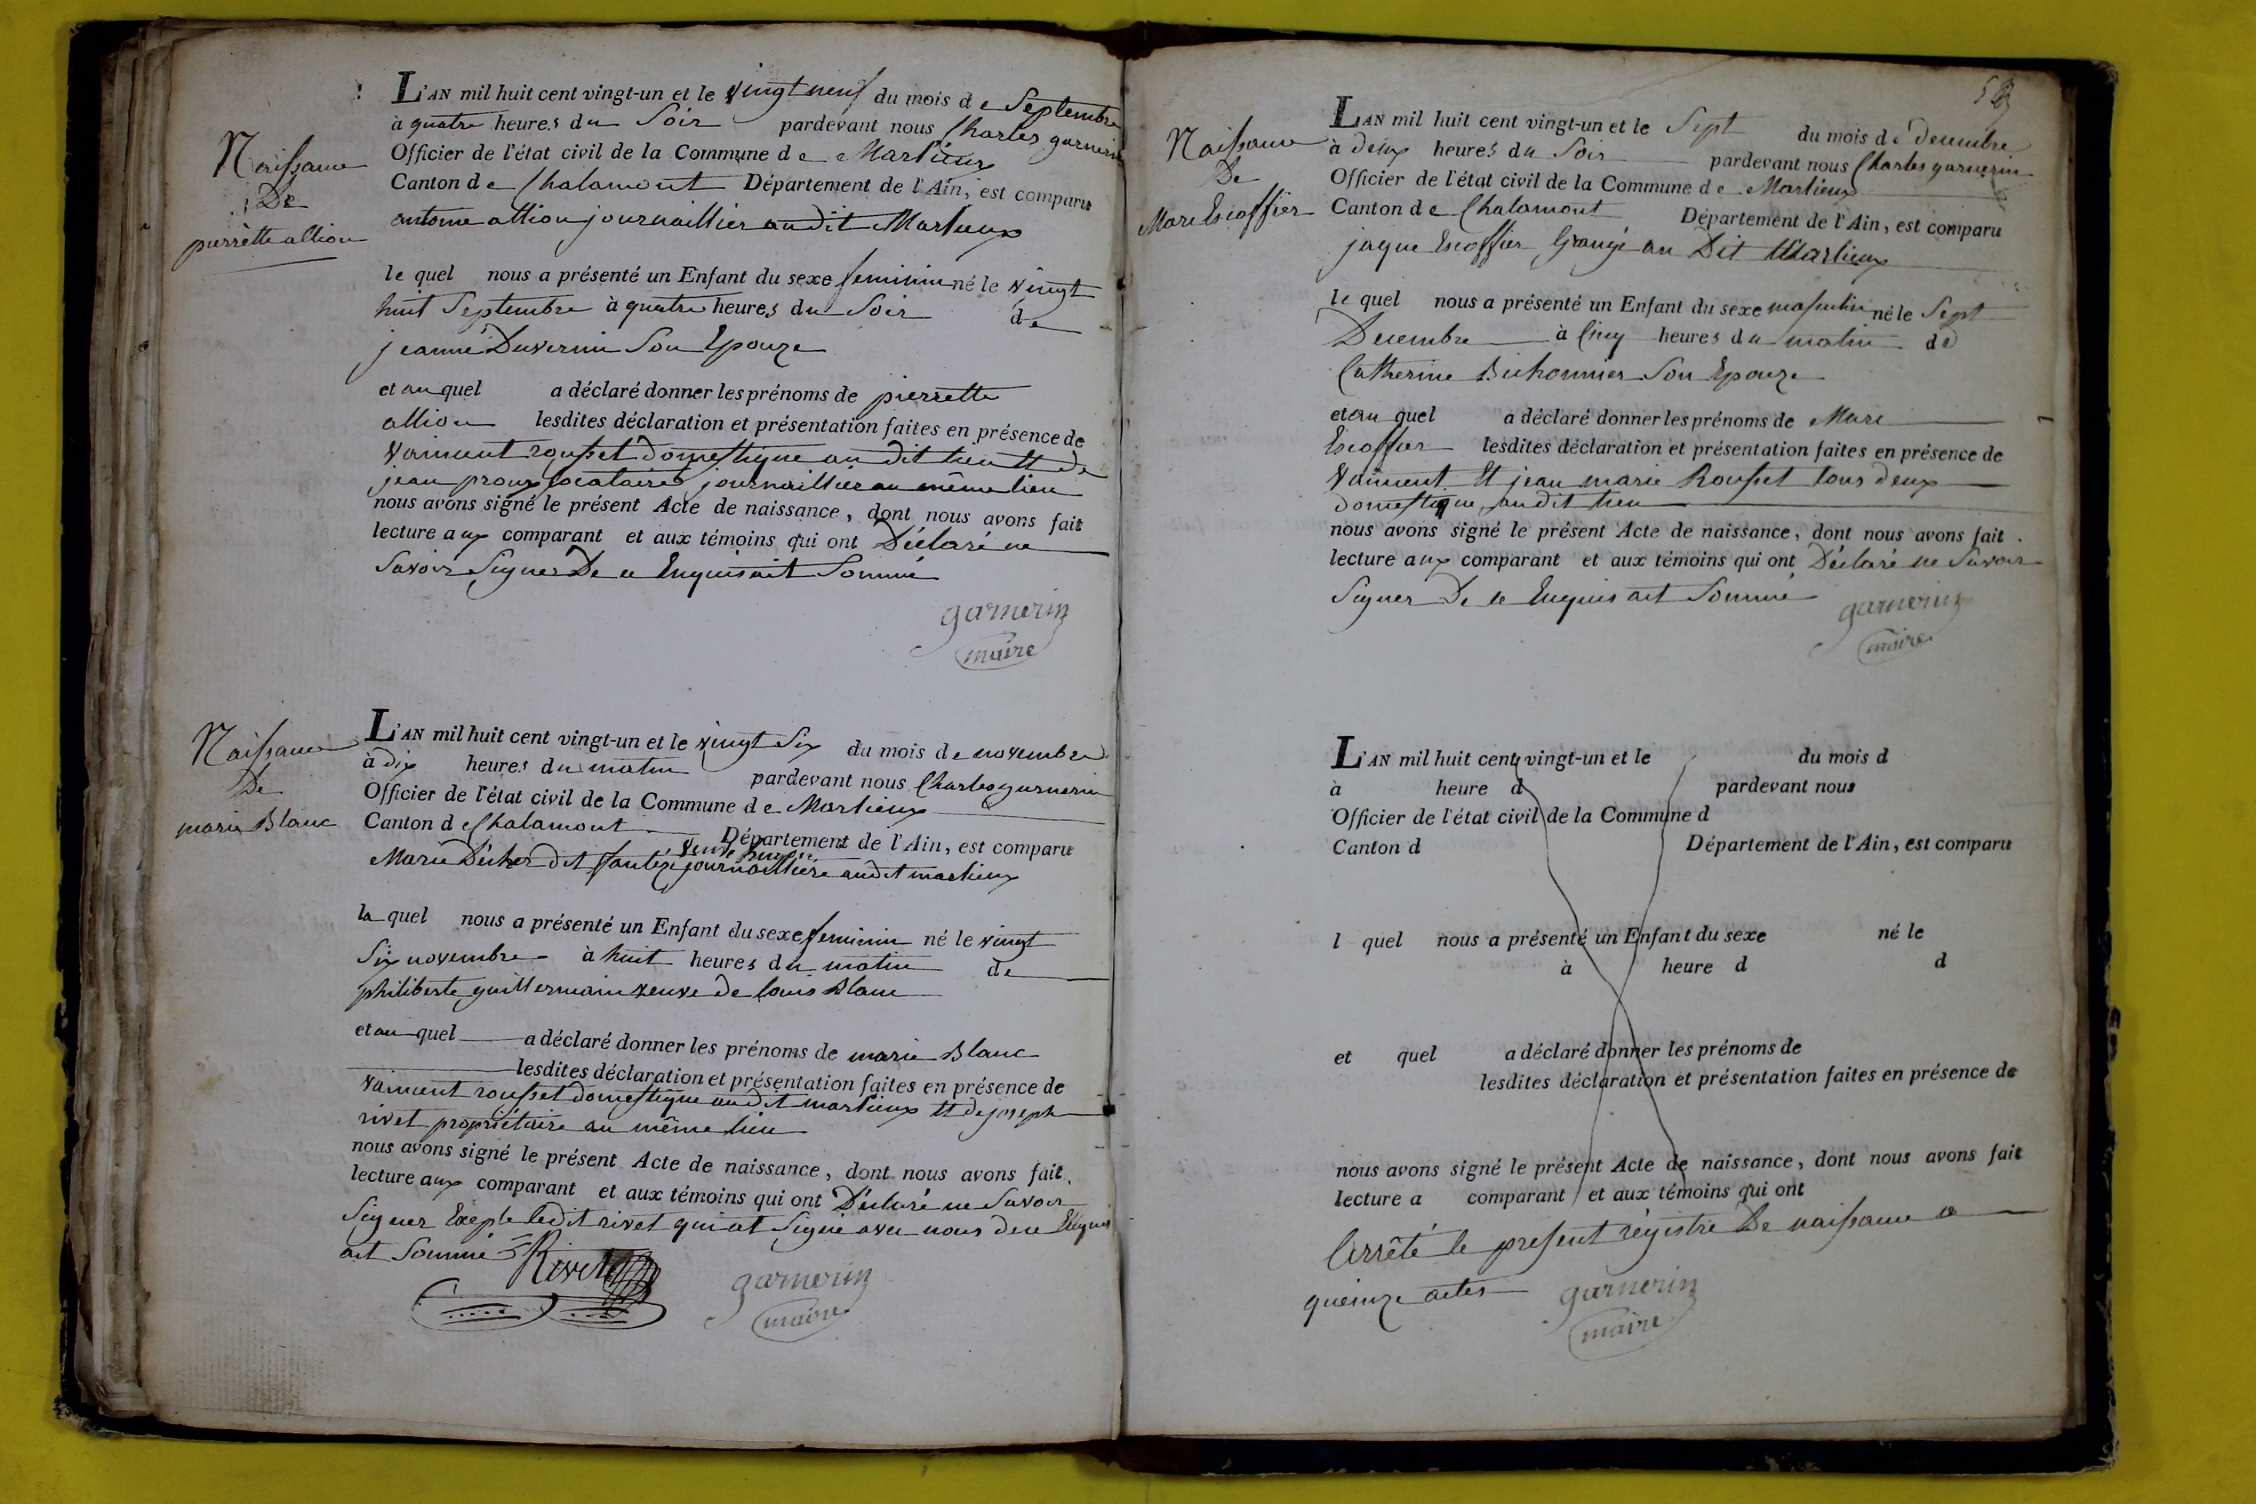 Naissance
De
pierrette allion
L'AN mil huit cent vingt-un et le vingt neuf du mois de Septembre
à quatre heures du Soir pardevant nous Charles garnerin
Officier de l'état civil de la Commune de Marlieux
Canton de Chalamont Département de l'Ain, est comparu
antoine allion journaillier audit Marlieux
le quel nous a présenté un Enfant du sexe feminin né le vingt
huit Septembre à quatre heures du Soir de
jeanne Duvernin Son Epouze
et au quel a déclaré donner les prénoms de pierrette
allion lesdites déclaration et présentation faites en présence de
vaincent rousset Domestique au dit lieu Et de
jean proux locataire journaillier au même lieu
nous avons signé le présent Acte de naissance, dont nous avons fait
lecture aux comparant et aux témoins qui ont Déclaré ne
Savoir Signer De ce Enquis ait Sommé
garnerin
maire
Naissance
De
marie Blanc
L'AN mil huit cent vingt-un et le vingt Six du mois de novembre
à dix heures du matin pardevant nous Charles garnerin
Officier de l'état civil de la Commune de Marlieux
Canton de Chalamont Département de l'Ain, est comparu
veuve
Marie Décher dit journaillière audit marlieux
la quel nous a présenté un Enfant du sexe feminin né le vingt
Six novembre à huit heures du matin de
philiberte guillermain veuve de louis Blanc
et au quel a déclaré donner les prénoms de marie Blanc
lesdites déclaration et présentation faites en présence de
vaincent rousset domestique audit marlieux Et de joseph
rivet propriétaire au même lieu
nous avons signé le présent Acte de naissance, dont nous avons fait
lecture aux comparant et aux témoins qui ont Déclaré ne Savoir
Signer Exepte ledit rivet qui at Signé avec nous de ce Enquis
ait Sommé
Rivet
garnerin
maire
Naissance
De
Marc Escoffier
L'AN mil huit cent vingt-un et le Sept du mois de decembre
à deux heures du Soir pardevant nous Charles garnerin
Officier de l'état civil de la Commune de Marlieux
Canton de Chalamont Département de l'Ain, est comparu
jaque Escoffier Grangé au Dit Marlieux
le quel nous a présenté un Enfant du sexe masculin né le Sept
Decembre à Cinq heures du matin de
Catherine Bichonnier Son Epouze
et au quel a déclaré donner les prénoms de Marc
Escoffier lesdites déclaration et présentation faites en présence de
Vaincent Et jean marie Rousset tous deux
Domestique audit lieu
nous avons signé le présent Acte de naissance, dont nous avons fait
lecture aux comparant et aux témoins qui ont Déclaré ne Savoir
Signer De ce Enquis ait Sommé
garnerin
maire
L'AN mil huit cent vingt-un et le du mois d
à heure d pardevant nous
Officier de l'état civil de la Commune d
Canton d Département de l'Ain, est comparu
l quel nous a présenté un Enfant du sexe né le
à heure d d
et quel a déclaré donner les prénoms de
lesdites déclaration et présentation faites en présence de
nous avons signé le présent Acte de naissance, dont nous avons fait
lecture a comparant et aux témoins qui ont
Arrêté le present régistre De naissance a
queinze actes
garnerin
maire